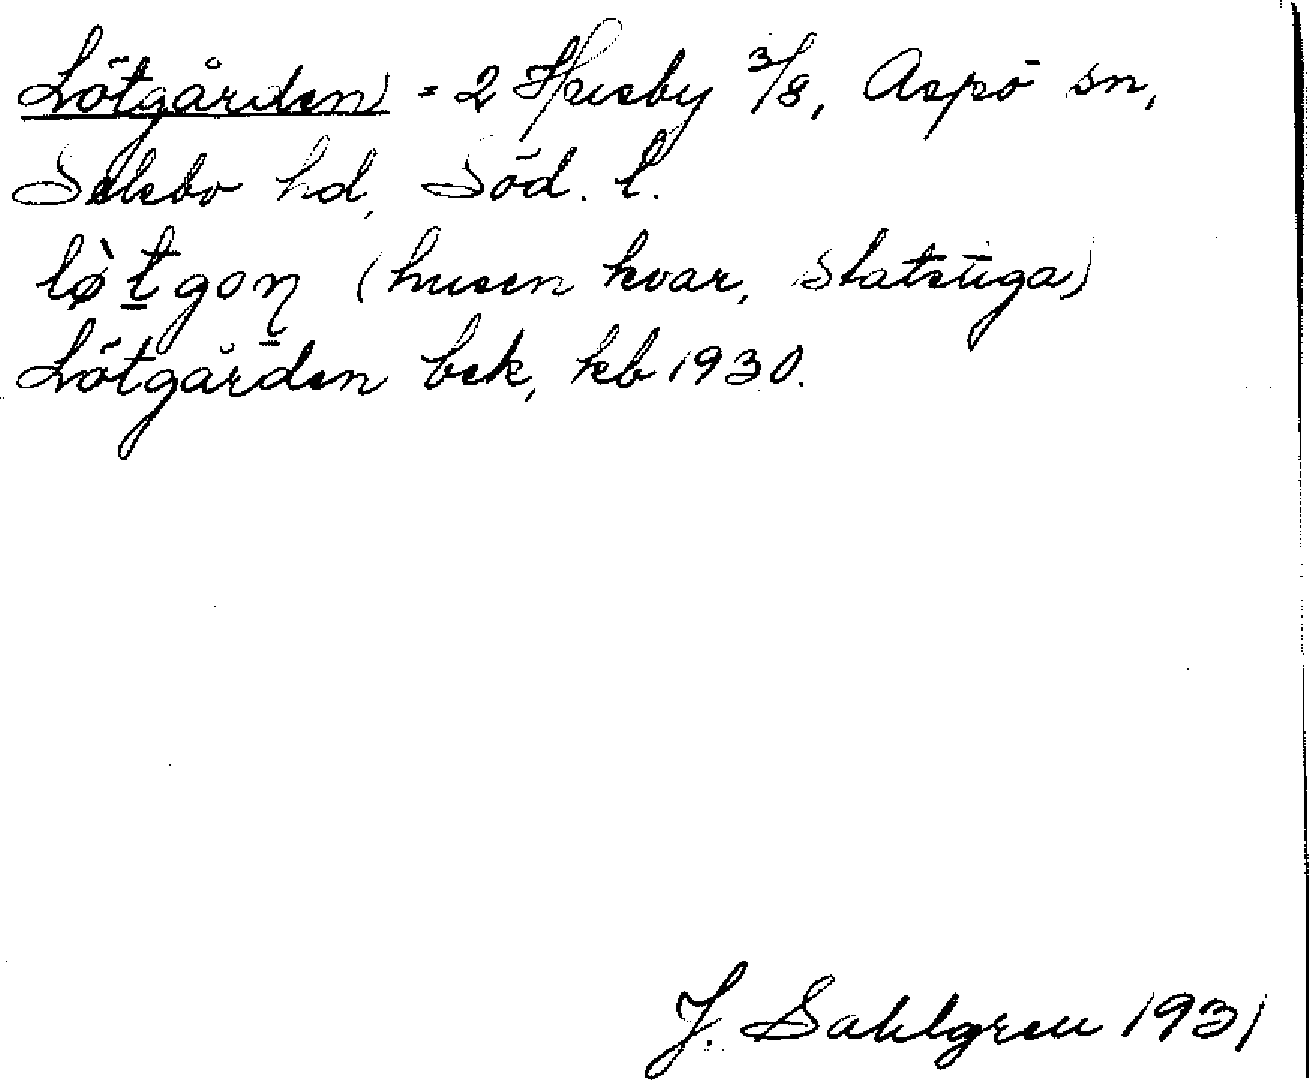 Lötgården = 2 Husby 3/8, Aspö sn,
Selebo hd, Söd. l.
lø̀t̠goɳ (husen kvar, statstuga)
Lötgården bek, kb 1930.
J. Sahlgren 1931